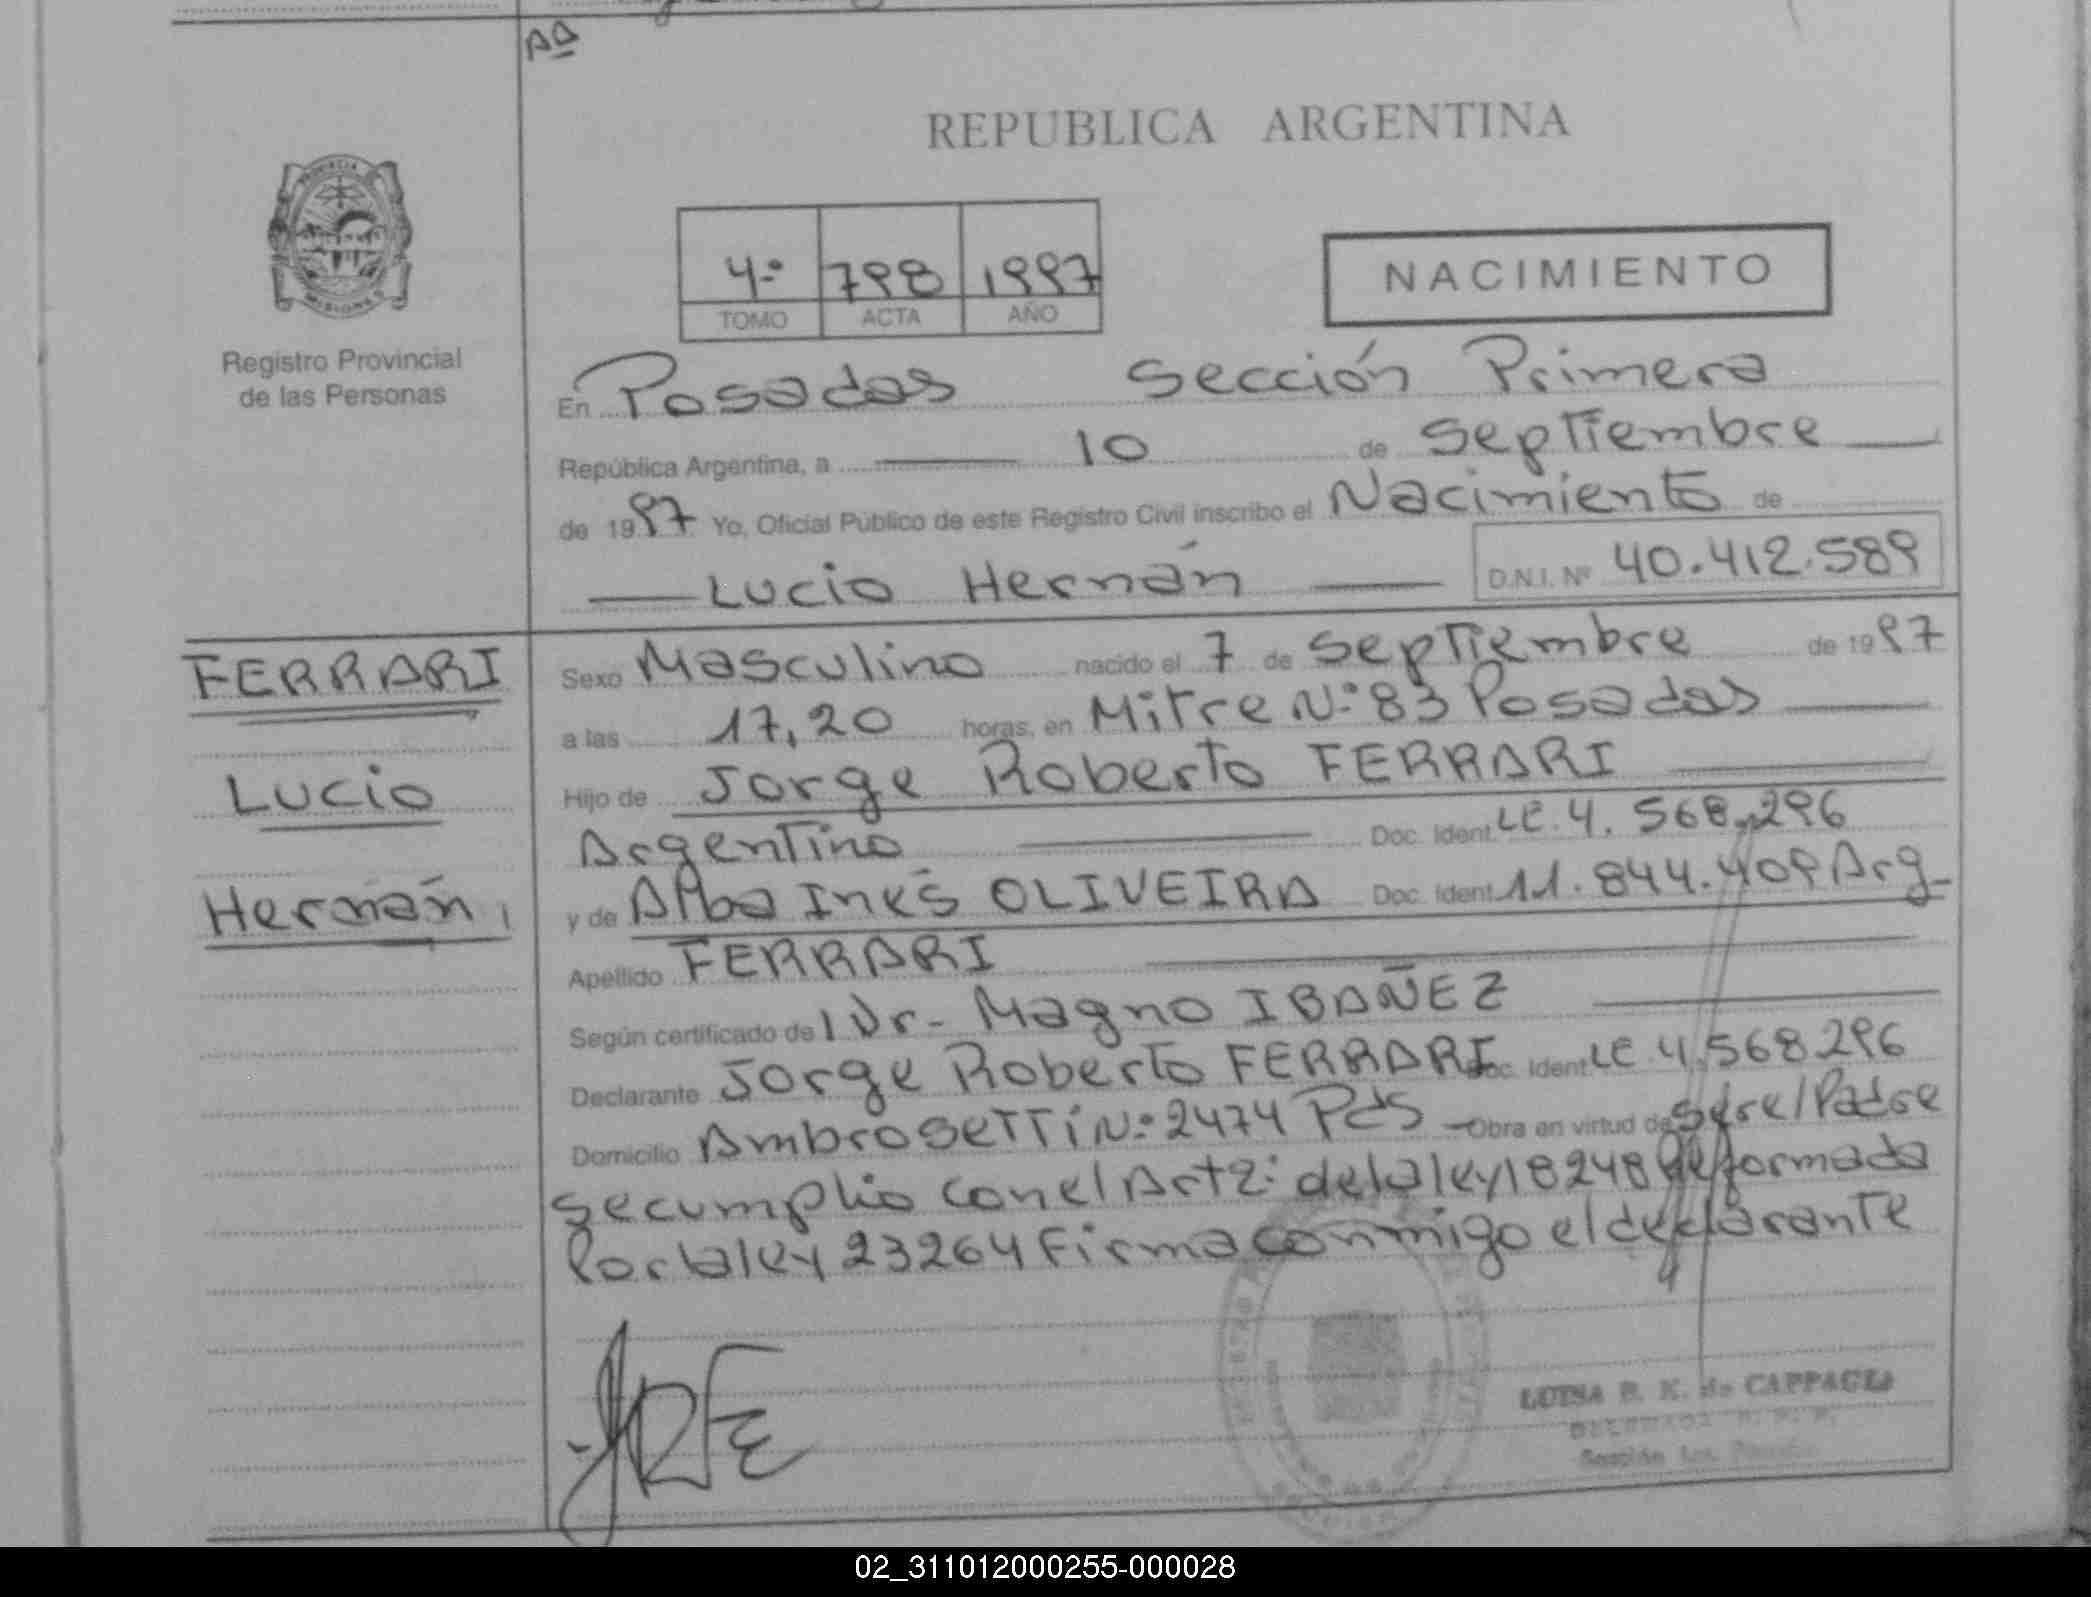 Aa
REPUBLICA ARGENTINA
PROVINCIA
MISIONES
Registro Provincial
de las Personas
4º 798 1997
TOMO ACTA AÑO
NACIMIENTO
En Posadas Sección Primera
República Argentina, a 10 de Septiembre
de 1997 Yo, Oficial Público de este Registro Civil inscribo el Nacimiento de
Lucio Hernán D.N.I. Nº 40.412.589
FERRARI
Lucio
Hernán,
Sexo Masculino nacido el 7 de Septiembre de 1997
a las 17,20 horas, en Mitre Nº 83 Posadas
Hijo de Jorge Roberto FERRARI
Argentino Doc. Ident. LE. 4.568.296
y de Alba Inés OLIVEIRA Doc. Ident. 11.844.409 Arg-
Apellido FERRARI
Según certificado del Dr- Magno IBAÑEZ
Declarante Jorge Roberto FERRARI Doc. Ident. LE 4.568296
Domicilio Ambrosetti Nº 2474 Pds - Obra en virtud de ser el Padre
Se cumplio con el Art 2º de la ley 18248 Reformada
Por la ley 23264 Firma conmigo el declarante
LUISA B. K. de CAPPAGLI
Sección
02_311012000255-000028